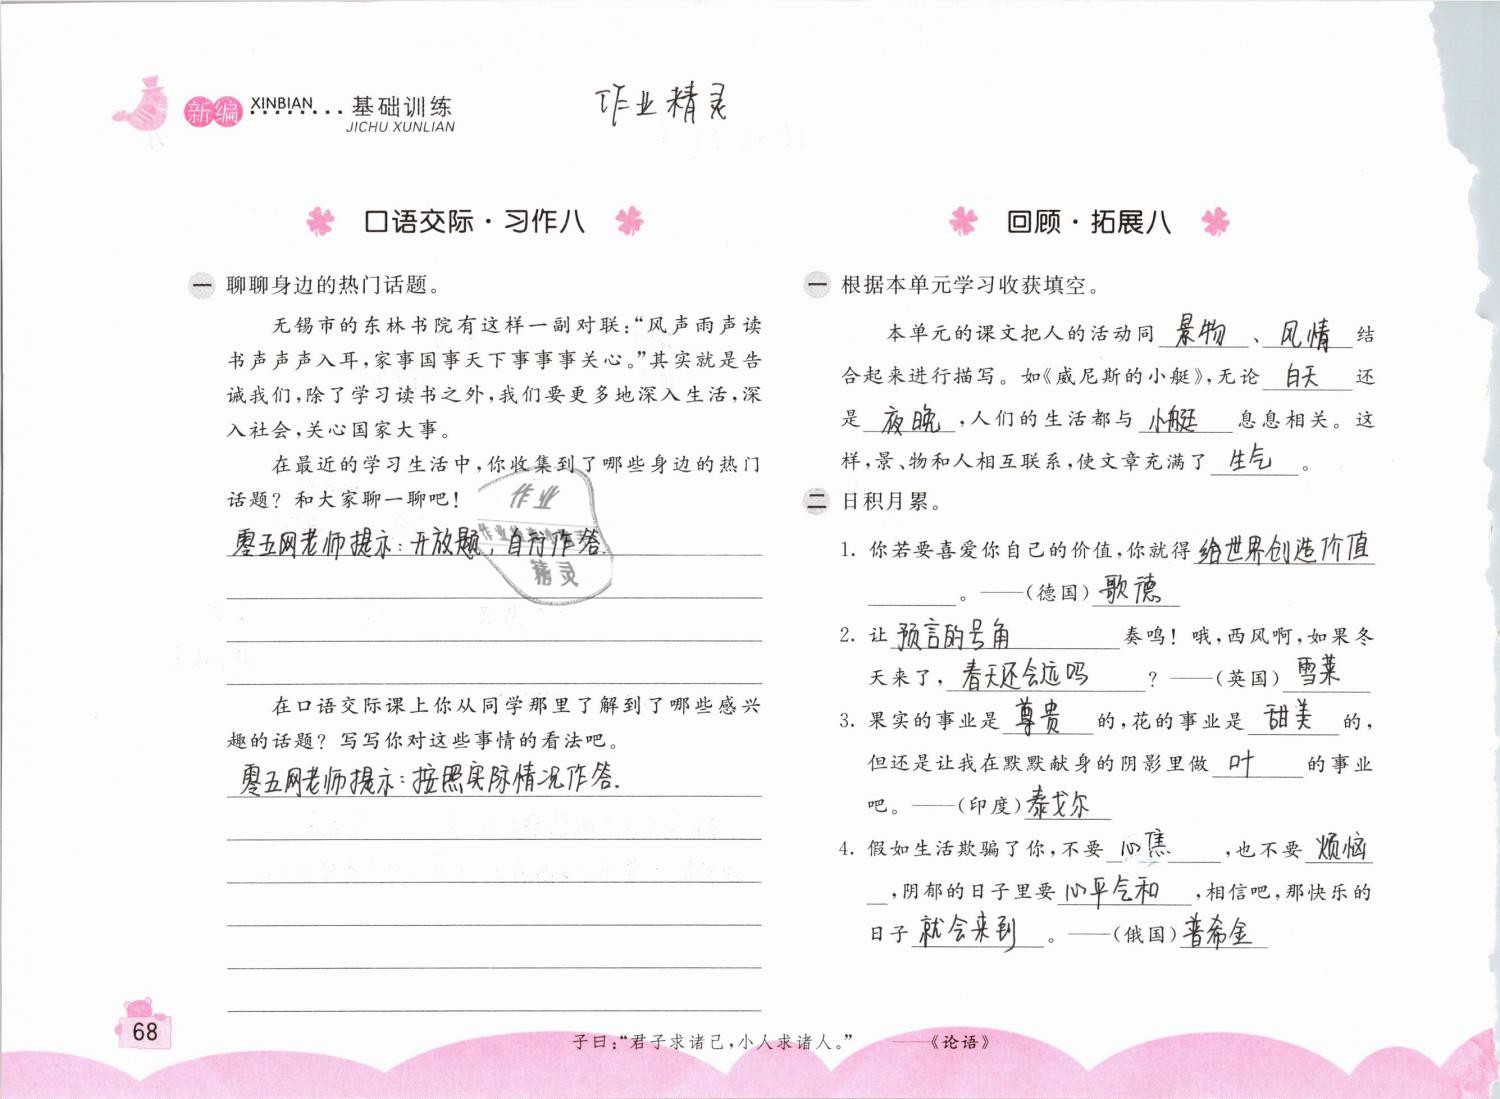 新编 XINBIAN 基础训练
JICHU XUNLIAN
作业精灵
口语交际·习作八
一 聊聊身边的热门话题。
无锡市的东林书院有这样一副对联:“风声雨声读
书声声声入耳,家事国事天下事事事关心。”其实就是告
诫我们,除了学习读书之外,我们要更多地深入生活,深
入社会,关心国家大事。
在最近的学习生活中,你收集到了哪些身边的热门
话题? 和大家聊一聊吧!
零五网老师提示:开放题,自行作答.
作业
精灵
在口语交际课上你从同学那里了解到了哪些感兴
趣的话题? 写写你对这些事情的看法吧。
零五网老师提示:按照实际情况作答.
回顾·拓展八
一 根据本单元学习收获填空。
本单元的课文把人的活动同 景物 、 风情 结
合起来进行描写。如《威尼斯的小艇》,无论 白天 还
是 夜晚 ,人们的生活都与 小艇 息息相关。这
样,景、物和人相互联系,使文章充满了 生气 。
二 日积月累。
1. 你若要喜爱你自己的价值,你就得 给世界创造价值
。——(德国) 歌德
2. 让 预言的号角 奏鸣! 哦,西风啊,如果冬
天来了, 春天还会远吗 ? ——(英国) 雪莱
3. 果实的事业是 尊贵 的,花的事业是 甜美 的,
但还是让我在默默献身的阴影里做 叶 的事业
吧。——(印度) 泰戈尔
4. 假如生活欺骗了你,不要 心焦 ,也不要 烦恼
,阴郁的日子里要 心平气和 ,相信吧,那快乐的
日子 就会来到 。——(俄国) 普希金
68
子曰:“君子求诸己,小人求诸人。” ——《论语》